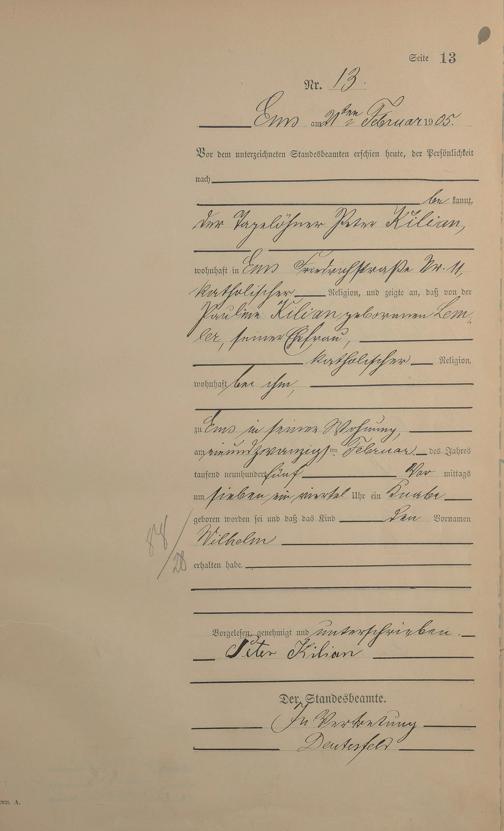 Seite 13
Nr. 13.
Ems am 21ten Februar 1905.
Vor dem unterzeichneten Standesbeamten erschien heute, der Persönlichkeit
nach
be kannt,
der Tagelöhner Peter Kilian,
wohnhaft in Ems Friedrichstraße Nr. 11,
katholischer Religion, und zeigte an, daß von der
Pauline Kilian, geborenen Lem-
ler, seiner Ehefrau,
katholischer Religion,
wohnhaft bei ihm,
zu Ems in seiner Wohnung,
am einundzwanzigsten Februar des Jahres
tausend neunhundert fünf Vor mittags
um sieben ein viertel Uhr ein Knabe
geboren worden sei und daß das Kind den Vornamen
Wilhelm
erhalten habe.
Vorgelesen, genehmigt und unterschrieben.
Peter Kilian
Der Standesbeamte.
In Vertretung